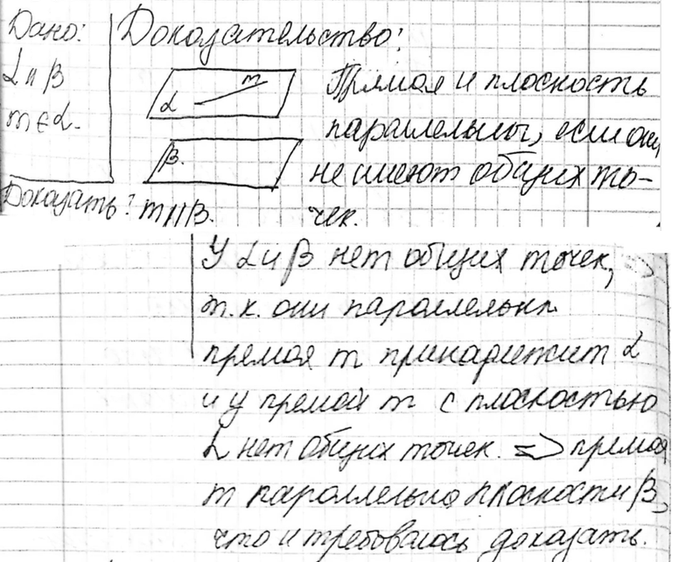 Дано:
α и β
m ∈ α.
Доказать: m || β.
Доказательство:
α m
β
Прямая и плоскость
параллельны, если они
не имеют общих то-
чек.
У α и β нет общих точек,
т.к. они параллельны
прямая m принадлежит α
и у прямой m с плоскостью
α нет общих точек. => прямая
m параллельна плоскости β,
что и требовалось доказать.